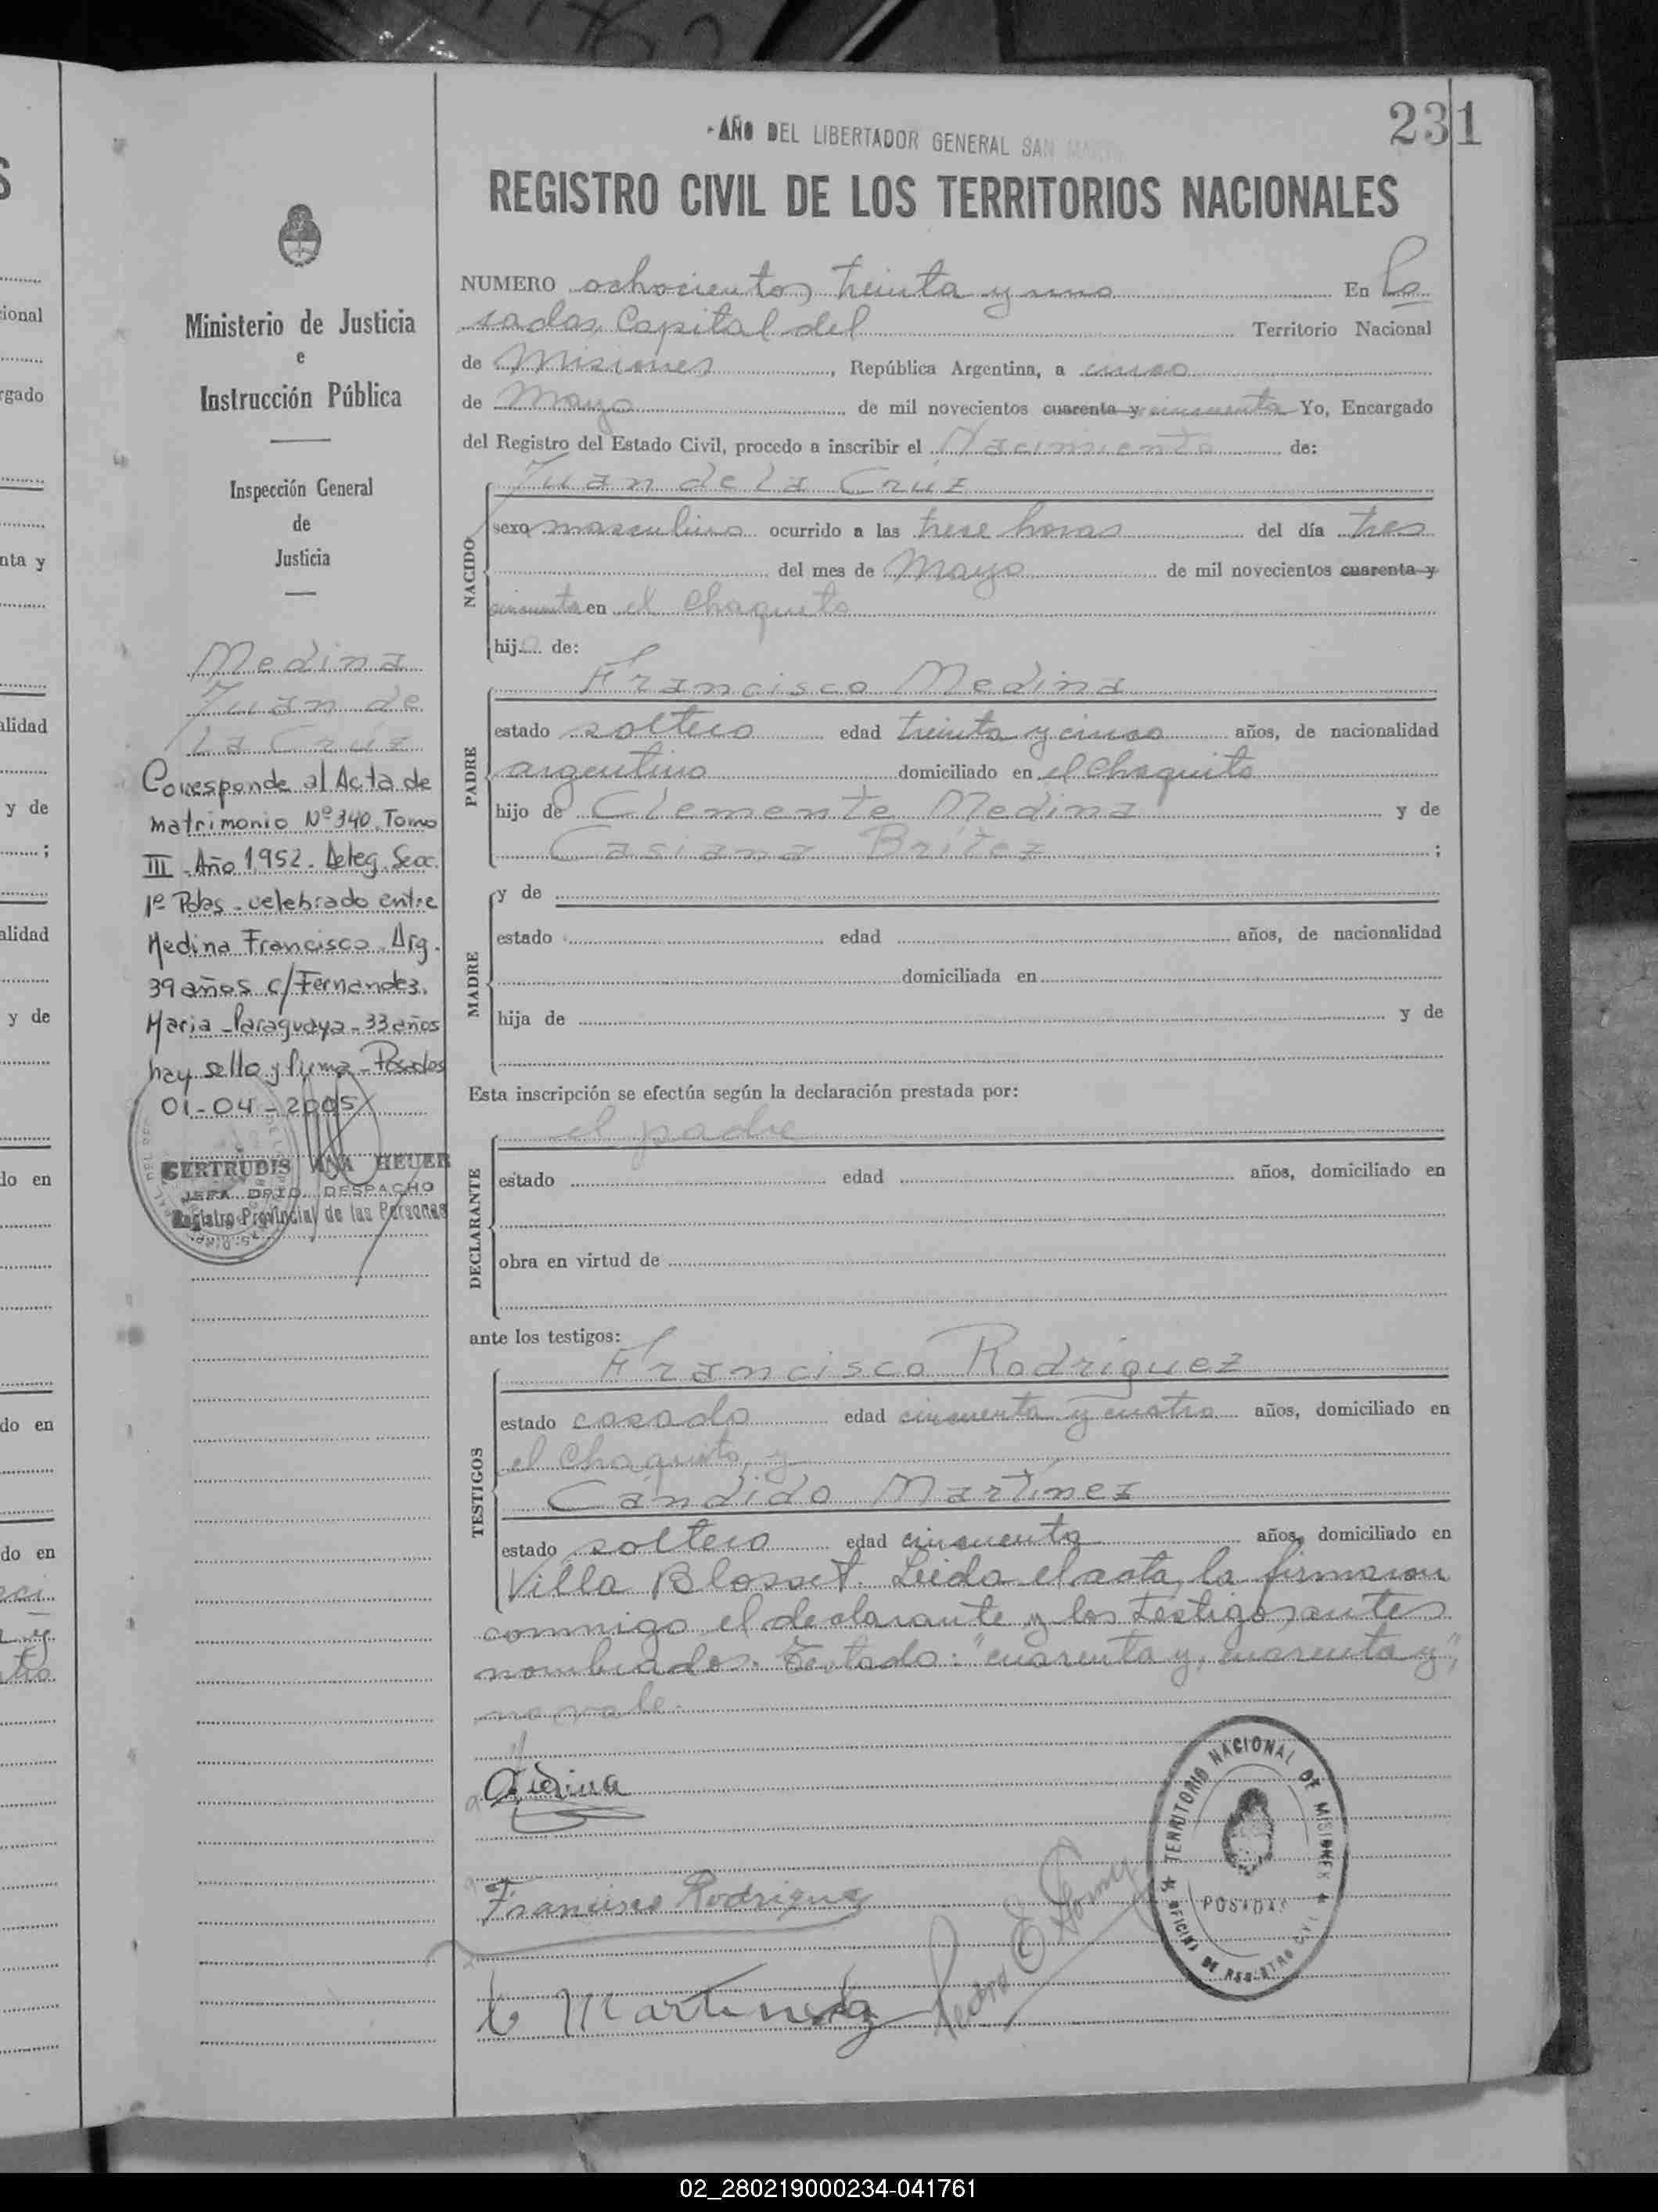 231
AÑO DEL LIBERTADOR GENERAL SAN MARTIN
REGISTRO CIVIL DE LOS TERRITORIOS NACIONALES
NUMERO ochocientos treinta y uno En Po
sadas, Capital del Territorio Nacional
de Misiones, República Argentina, a cinco
de Mayo de mil novecientos cuarenta y cincuenta Yo, Encargado
del Registro del Estado Civil, procedo a inscribir el Nacimiento de:
NACIDO
Juan de la Crúz
sexo masculino ocurrido a las trece horas del día tres
del mes de Mayo de mil novecientos cuarenta y
cincuenta en el Chaquito
hijo de:
PADRE
Francisco Medina
estado soltero edad treinta y cinco años, de nacionalidad
argentino domiciliado en el Chaquito
hijo de Clemente Medina y de
Casiana Britez ;
MADRE
y de
estado edad años, de nacionalidad
domiciliada en
hija de y de
Esta inscripción se efectúa según la declaración prestada por:
DECLARANTE
el padre
estado edad años, domiciliado en
obra en virtud de
ante los testigos:
TESTIGOS
Francisco Rodriguez
estado casado edad cincuenta y cuatro años, domiciliado en
el Chaquito, y
Cándido Martínez
estado soltero edad cincuenta años, domiciliado en
Villa Blosset. Leida el acta, la firmaron
conmigo el declarante y los testigos antes
nombrados. Testado: "cuarenta y, cuarenta y",
no vale.
Francisco Rodriguez
C Martinez
TERRITORIO NACIONAL DE MISIONES
POSADAS
OFICINA DE REGISTRO CIVIL
Ministerio de Justicia
e
Instrucción Pública
Inspección General
de
Justicia
Medina
Juan de
La Crúz
Corresponde al Acta de
matrimonio Nº 340. Tomo
III - Año 1952. Deleg. Secc.
1º Pdas - celebrado entre
Medina Francisco - Arg.
39 años c/ Fernandez.
Maria - Paraguaya - 33 años
hay sello y firma - Posadas
01-04-2005
GERTRUDIS ANA HEUER
JEFA DPTO. DESPACHO
Registro Provincial de las Personas
ional
rgado
nta y
alidad
y de
;
alidad
y de
do en
do en
do en
02_280219000234-041761